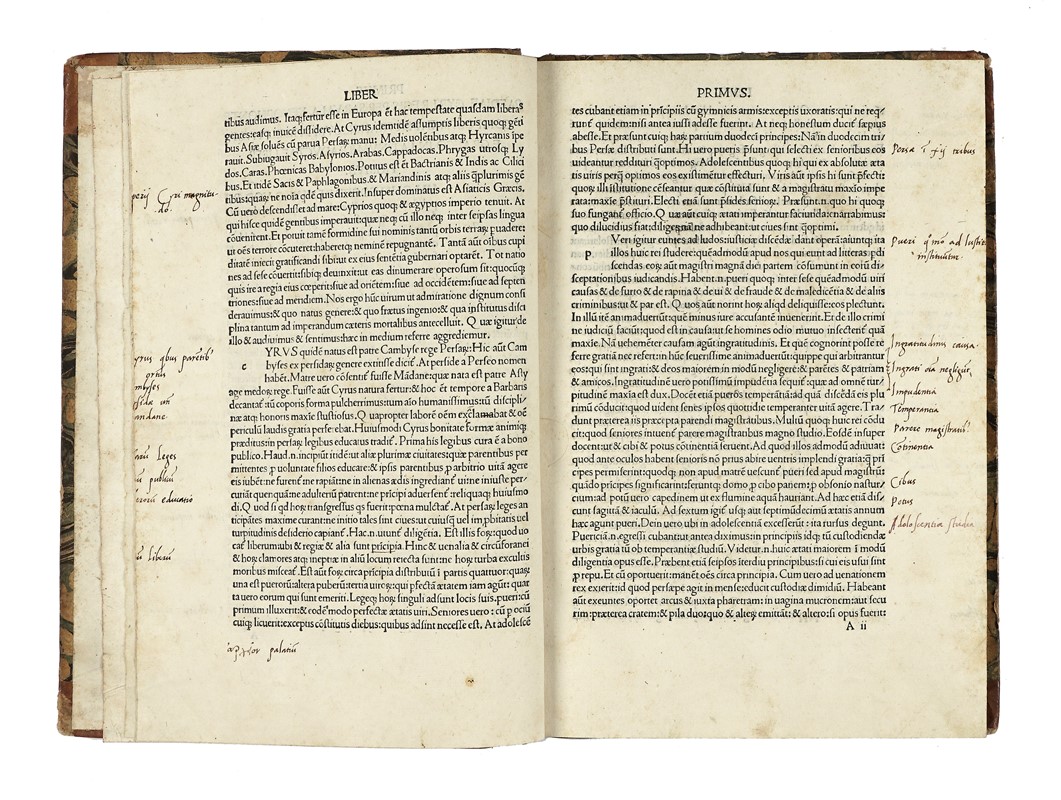 LIBER
tibus audimus. Itaq; fertur esse in Europa & hac tempestate quasdam liberas
gentes: easq; inuicē dissidere. At Cyrus identidē assumptis liberis quoq; gēti
bus Asiæ soluēs cū parua Persaꝝ manu: Medis uolētibus atq; Hyrcanis īpe
rauit. Subiugauit Syros. Asyrios. Arabas. Cappadocas. Phrygas utrosq; Ly
dos. Caras. Phœnicas Babylonios. Potitus est & Bactrianis & Indis ac Cilici
bus. Et itidē Sacis & Paphlagonibus. & Mariandinis atq; aliis q̃plurimis gē
tibus: quaꝝ ne noīa qdē quis dixerit. Insuper dominatus est Asiaticis Græcis.
Cū uero descendisset ad mare: Cyprios quoq; & ægyptios imperio tenuit. At
qui hisce quidē gentibus imperauit: quæ neq; cū illo neq; inter seipsas lingua
cōuenirent. Et potuit tamē formidine sui nominis tantū orbis terraꝝ puadere:
ut oēs terrore cōuteret: haberetq; neminē repugnantē. Tantā aūt oībus cupi
ditatē iniecit gratificandi sibi: ut ex eius sentētia gubernari optarēt. Tot natio
nes ad sese cōuertit: sibiq; deuinxit: ut eas dinumerare operosum sit: quocūq;
quis ire a regia eius cœperit: siue ad oriētem: siue ad occidētem: siue ad septen
triones: siue ad meridiem. Nos ergo hūc uirum ut admiratione dignum consi
derauimus: & quo natus genere: & quo frætus ingenio: & qua institutus disci
plina tantum ad imperandum cæteris mortalibus antecelluit. Quæ igitur de
illo & audiuimus & sentimus: hæc in medium referre aggrediemur.
c YRVS quidē natus est patre Cambyse rege Persaꝝ: Hic aūt Cam
byses ex persidaꝝ genere extitisse dicit̄. At persidæ a Perseo nomen
habēt. Matre uero cōsentit̄ fuisse Mādane: quæ nata est patre Asty
age medoꝝ rege. Fuisse aūt Cyrus natura fertur: & hoc & tempore a Barbaris
decantat̄ tū coporis forma pulcherrimus: tum aīo humanissimus: tū discipli
næ atq; honoris maxīe studiosus. Quapropter laborē oēm exclamabat & oē
periculū laudis gratia perferebat. Huiusmodi Cyrus bonitate formæ animiq;
præditus: in persaꝝ legibus educatus tradit̄. Prima his legibus cura ē a bono
publico. Haud. n. incipiūt itidē: ut aliæ plurimæ ciuitates: quæ parentibus per
mittentes p uoluntate filios educare: & ipsis parentibus p arbitrio uitā agere
eis iubēt: ne furent̄: ne rapiāt: ne in alienas ædis ingrediant̄: ut ne iniuste per-
cutiāt quenquā: ne adulteriū patrent: ne prīcipi aduersent̄: reliquaq; huiusmo
di. Quod si qd hoꝝ trāsgressus qs fuerit: pœna mulctāt. At persaꝝ leges an
ticipātes maxime curant: ne initio tales sint ciues: ut cuiusq̄ uel improbitatis uel
turpitudinis desiderio capiant̄. Hac. n. utunt̄ diligētia. Est illis foꝝ: quod uo
cāt liberum: ubi & regiæ & alia sunt prīcipia. Hinc & uenalia & circūforanei
& hoꝝ clamores atq; ineptiæ in aliū locum reiecta sunt: ne hoꝝ turba excultis
moribus misceat̄. Est aūt foꝝ: circa prīcipia distributū i partis quattuor: quaꝝ
una est pueroꝝ: altera puberū: tertia uiroꝝ: qui pfectā ætatem iam agūt: quar
ta uero eorum qui sunt emeriti. Legeq; hoꝝ singuli adsunt locis suis. pueri: cū
primum illuxerit: & eodē modo perfectæ ætatis uiri. Seniores uero: cū p ociū
cuiq; licuerit: exceptis cōstitutis diebus: quibus adsint necesse est. At adolescē
palatiū
PRIMVS.
tes cubant etiam in prīcipiis cū gymnicis armis: exceptis uxoratis: qui ne req̄-
runt̄ quidem: nisi antea iussi adesse fuerint. At neq; honestum ducit̄ sæpius
abesse. Et præsunt cuiq; haꝝ partium duodecī principes: Nā in duodecim tri-
bus Persæ distributi sunt. Hi uero pueris p̄sunt: qui selecti ex senioribus eos
uideantur reddituri q̄optimos. Adolescentibus quoq; hi qui ex absolutæ æta
tis uiris perq̄ optimos eos existimētur effecturi. Viris aūt ipsis hi sunt p̄fecti:
quoꝝ illi istitutione cēseantur quæ cōstituta sunt & a magistratu maxīo impe
rata: maxīe p̄stituri. Electi etiā sunt p̄sides serioꝝ. Præsunt. n. quo hi quoq;
suo fungant̄ officio. Quæ aūt cuiq; ætati imperantur faciūda: narrabimus:
quo dilucidius fiat: diligētia ne adhibeant: ut ciues sint q̄optimi.
P Veri igitur eūtes ad ludos: iusticiæ discēdæ dant operā: aiuntq; ita
illos huic rei studere: quēadmodū apud nos qui eunt ad litteras pdi
scendas eoꝝ aūt magistri magnā diei partem cōsumunt in eoꝝ di-
sceptationibus iudicandis. Habent. n. pueri quoq; inter sese quēadmodū uiri
causas & de furto & de rapina & de ui & de fraude & de maledicētia & de aliis
criminibus: ut & par est. Quos aūt norint hoꝝ aliqd deliquisse: eos plectunt.
In illū itē animaduertūt: quē minus iure accusante inuenerint. Et de illo crimi
ne iudiciū faciūt: quod est in causa: ut se homines odio mutuo insectent̄ quā
maxīe. Nā uehemēter causam agūt ingratitudinis. Et quē cognorint posse re
ferre gratiā nec refert: in hūc seuerissime animaduertūt: quippe qui arbitrantur
eos: qui sint ingrati: & deos maiorem in modū negligere: & parētes & patriam
& amicos. Ingratitudinē uero potissimū impudētia seqit̄: quæ ad omnē tur-
pitudinē maxia est dux. Docēt etiā pueros tēperātiā: ad quā discēdā eis plu
rimū cōducit: quod uident senes ipsos quotidie temperanter uitā agere. Tra-
dunt præterea iis præcepta parendi magistratibus. Multū quoq; huic rei cōdu
cit: quod seniores intuent̄ parere magistratibus magno studio. Eosdē insuper
docent: ut & cibi & potus cōtinentiā seruent. Ad quod illos admodū adiuuat:
quod ante oculos habent seniores nō prius abire uentris implendi gratia: q̄ prī
cipes permiserint: quodq; non apud matrē uescunt̄ pueri sed apud magistrū:
quādo prīcipes significarint: ferūtq; domo p cibo panem: p obsonio nastur
cium: ad potū uero capedinem ut ex flumine aquā hauriant. Ad hæc etiā dis-
cunt sagittā & iaculū. Ad sextum igit̄ usq; aut septimūdecimū ætatis annum
hæc agunt pueri. Dein uero ubi in adolescētiā excesserūt: ita rursus degunt.
Puericiā. n. egressi cubant: ut antea diximus: in principiis idq; tū custodiendæ
urbis gratia tū ob temperātiæ studiū. Videtur. n. huic ætati maiorem ī modū
diligentia opus esse. Præbent etiā seipsos īterdiu principibus: si cui eis usui sint
p repu. Et cū oportuerit: manēt oēs circa principia. Cum uero ad uenationem
rex exierit: id quod persæpe agit in mense: educit custodiæ dimidiū. Habeant
aūt exeuntes oportet arcus & iuxta pharetram: in uagina mucronem: aut secu
rim: præterea cratem: & pila duo: quo & alteꝝ emittāt: & altero: si opus fuerit:
A ii
Persæ ī xij tribus
Pueri
Ingratitudinis causa.
Ingrati
Impudentia
Temperantia
Parere magistratib'
Cōtinentia
Cibus
Potus
Adolescentiæ studia